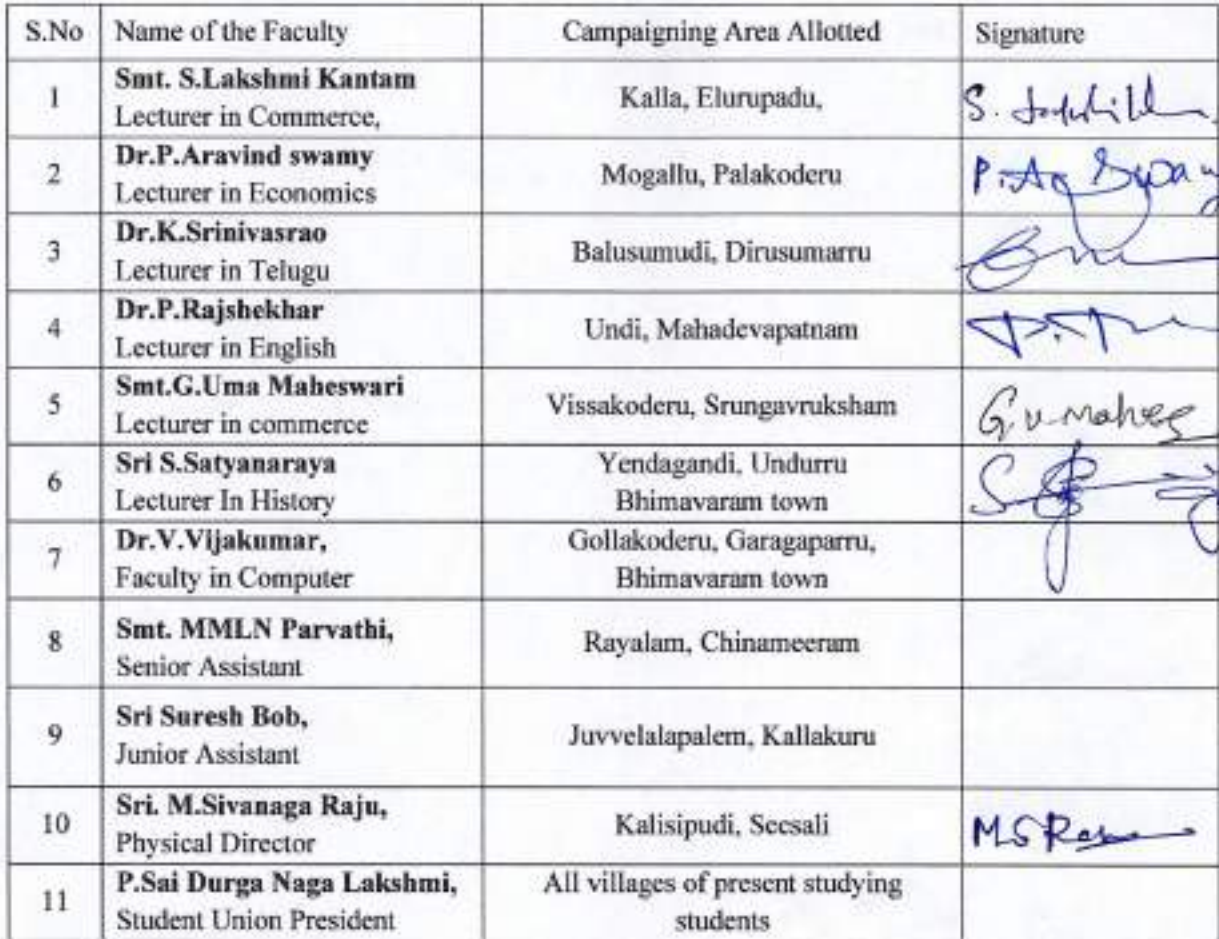 S.No Name of the Faculty Campaigning Area Allotted Signature
1 Smt. S.Lakshmi Kantam
Lecturer in Commerce, Kalla, Elurupadu,
S.
2 Dr.P.Aravind swamy
Lecturer in Economics Mogallu, Palakoderu
P. Swamy
3 Dr.K.Srinivasrao
Lecturer in Telugu Balusumudi, Dirusumarru
4 Dr.P.Rajshekhar
Lecturer in English Undi, Mahadevapatnam
5 Smt.G.Uma Maheswari
Lecturer in commerce Vissakoderu, Srungavruksham
G.
6 Sri S.Satyanaraya Yendagandi, Undurru
Lecturer In History Bhimavaram town
7 Dr.V.Vijakumar, Gollakoderu, Garagaparru,
Faculty in Computer Bhimavaram town
8 Smt. MMLN Parvathi,
Senior Assistant Rayalam, Chinameeram
9 Sri Suresh Bob,
Junior Assistant Juvvelalapalem, Kallakuru
10 Sri. M.Sivanaga Raju,
Physical Director Kalisipudi, Seesali
M S
11 P.Sai Durga Naga Lakshmi, All villages of present studying
Student Union President students